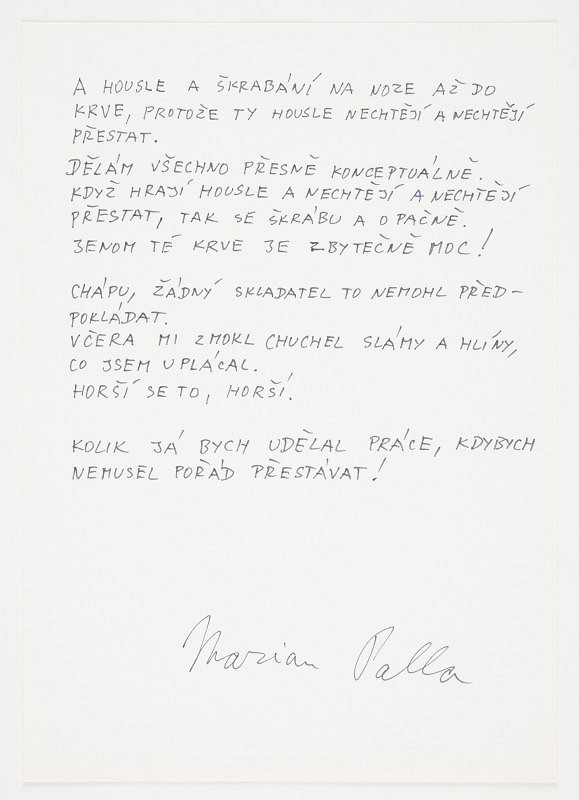 A HOUSLE A ŠKRABÁNÍ NA NOZE AŽ DO
KRVE, PROTOŽE TY HOUSLE NECHTĚJÍ A NECHTĚJÍ
PŘESTAT.
DĚLÁM VŠECHNO PŘESNĚ KONCEPTUÁLNĚ.
KDYŽ HRAJÍ HOUSLE A NECHTĚJÍ A NECHTĚJÍ
PŘESTAT, TAK SE ŠKRÁBU A OPAČNĚ.
JENOM TÉ KRVE JE ZBYTEČNĚ MOC!
CHÁPU, ŽÁDNÝ SKLADATEL TO NEMOHL PŘED-
POKLÁDAT.
VČERA MI ZMOKL CHUCHEL SLÁMY A HLÍNY,
CO JSEM UPLÁCAL.
HORŠÍ SE TO, HORŠÍ.
KOLIK JÁ BYCH UDĚLAL PRÁCE, KDYBYCH
NEMUSEL POŘÁD PŘESTÁVAT!
Marian Palla